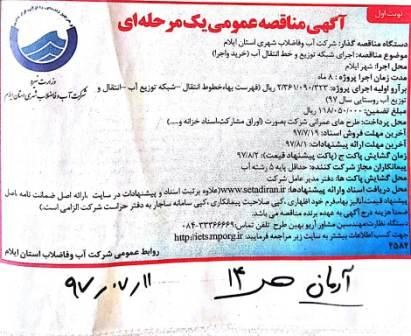 نوبت اول
آگهی مناقصه عمومی یک مرحله ای
دستگاه مناقصه گذار: شرکت آب وفاضلاب شهری استان ایلام
موضوع مناقصه: اجرای شبکه توزیع و خط انتقال آب (خرید واجرا)
محل اجرا: شهر ایلام
مدت زمان اجرا پروژه: ۸ ماه
برآورد اولیه اجرای پروژه: ۷/۳۶۱/۰۹۰/۳۲۳ ریال (فهرست بهاء خطوط انتقال –شبکه توزیع آب –انتقال و
توزیع آب روستایی سال ۹۷)
مبلغ تضمین: ۱۱۸/۰۵۰/۰۰۰ ریال
محل پرداخت: طرح های عمرانی شرکت بصورت (اوراق مشارکت،اسناد خزانه و....)
آخرین مهلت فروش اسناد: ۹۷/۷/۱۹
آخرین مهلت ارائه پیشنهادات: ۹۷/۸/۱
زمان گشایش پاکت ج (پاکت پیشنهاد قیمت): ۹۷/۸/۲
پیمانکاران مجاز شرکت کننده: حداقل پایه ۵ رشته آب
محل گشایش پاکت ها: دفتر مدیر عامل شرکت
محل دریافت اسناد وارائه پیشنهادها: www.setadiran.ir(علاوه برثبت اسناد و پیشنهادات در سایت ،ارائه اصل ضمانت نامه،اصل
پیشنهاد قیمت،آنالیز بهاءفرم خود اظهاری ،کپی صلاحیت پیمانکاری ،کپی سامانه ساجار به دفتر حراست شرکت الزامی است)
ضمنا هزینه درج آگهی به عهده برنده مناقصه می باشد.
دستگاه نظارت:مهندسین مشاور آریو بهین طرح تلفن تماس:۳۳۳۶۶۶۹-۰۸۴
جهت کسب اطلاعات بیشتر به سایت زیر مراجعه فرمایید. http://iets.mporg.ir
۲۵۸۴
روابط عمومی شرکت آب وفاضلاب استان ایلام
وزارت نیرو
شرکت آب وفاضلاب شهری استان ایلام
آرمان ص ۱۴ ۹۷،۰۷،۱۱